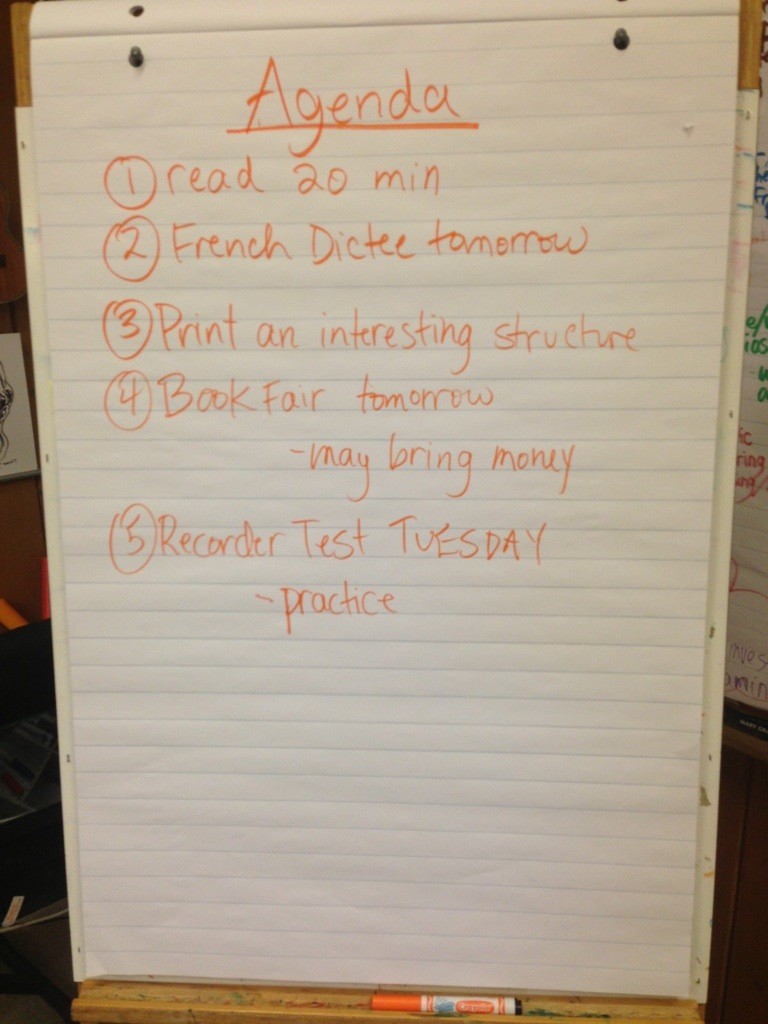 Agenda
① read 20 min
② French Dictee tomorrow
③ Print an interesting structure
④ Book Fair tomorrow
- may bring money
⑤ Recorder Test TUESDAY
- practice
Crayola